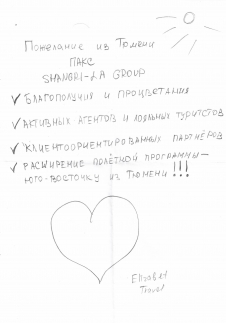 Пожелание из Тюмени
ПАКС
SHANGRI-LA GROUP
✓ Благополучия и процветания
✓ Активных агентов и лояльных туристов
✓ Клиентоориентированных партнёров
✓ Расширение полётной программы –
юго-восточку из Тюмени!!!
Elisabet
Travel